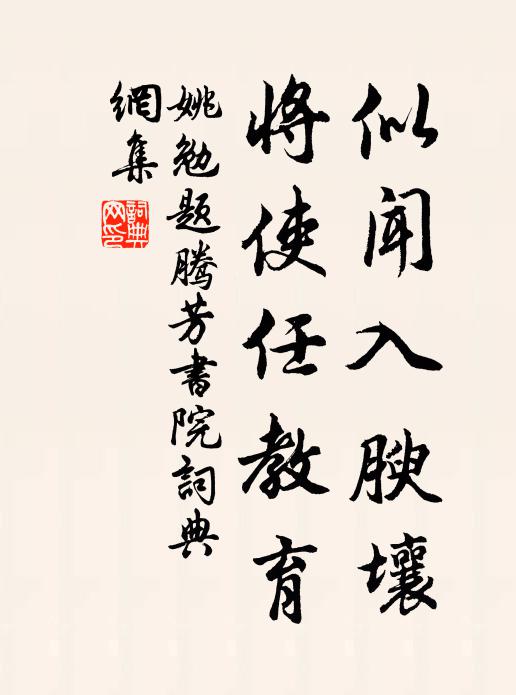 似闻入腴壤
将使任教育
姚勉题腾芳書院詞典
網集
詞典网印